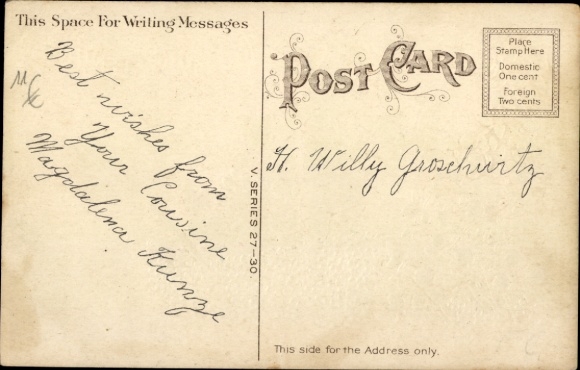 This Space For Writing Messages
Best wishes from
Your Couvine
Magdalena Kunze
V. SERIES 27-30.
POST CARD
Place
Stamp Here
Domestic
One cent
Foreign
Two cents
H. Willy Groschurtz
This side for the Address only.